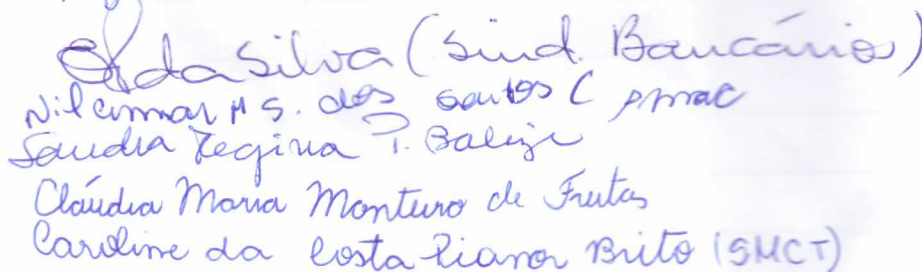 da Silva (Sind. Bancários)
Nilcimar M S. dos Santos (
Sandra Regina P.
Cláudia Maria Monteiro de Freitas
Caroline da Costa Viana Brito (SMCT)